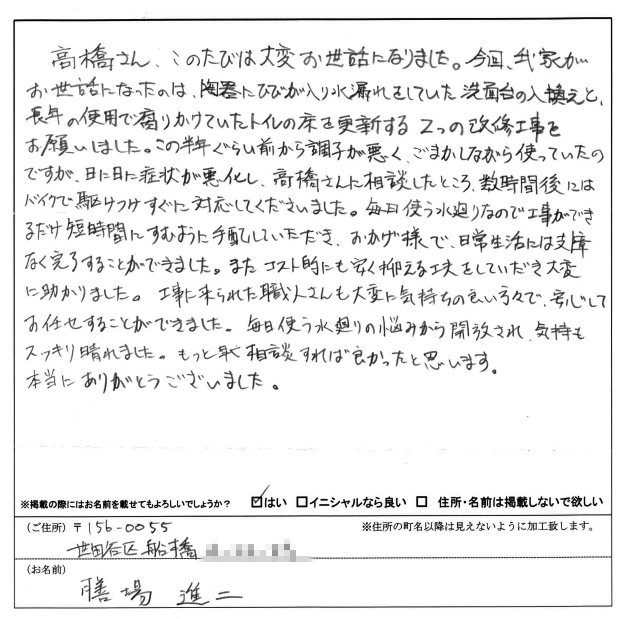 高橋さん、このたびは大変お世話になりました。今回、我家が
お世話になったのは、陶器にひびが入り水漏れをしていた洗面台の入換えと、
長年の使用で腐りかけていたトイレの床を更新する2つの改修工事を
お願いしました。この半年ぐらい前から調子が悪く、ごまかしながら使っていたの
ですが、日に日に症状が悪化し、高橋さんに相談したところ、数時間後には
バイクで駆けつけすぐに対応してくださいました。毎日使う水廻りなので工事ができ
るだけ短時間にすむように手配していただき、おかげ様で、日常生活には支障
なく完了することができました。またコスト的にも安く抑える工夫をしていだき大変
に助かりました。工事に来られた職人さんも大変に気持ちの良い方々で、安心して
お任せすることができました。毎日使う水廻りの悩みから開放され、気持も
スッキリ晴れました。もっと早く相談すれば良かったと思います。
本当にありがとうございました。
※掲載の際にはお名前を載せてもよろしいでしょうか？ ☑はい □イニシャルなら良い □ 住所・名前は掲載しないで欲しい
（ご住所）〒156-0055 ※住所の町名以降は見えないように加工致します。
世田谷区船橋
（お名前）
膳場 進二